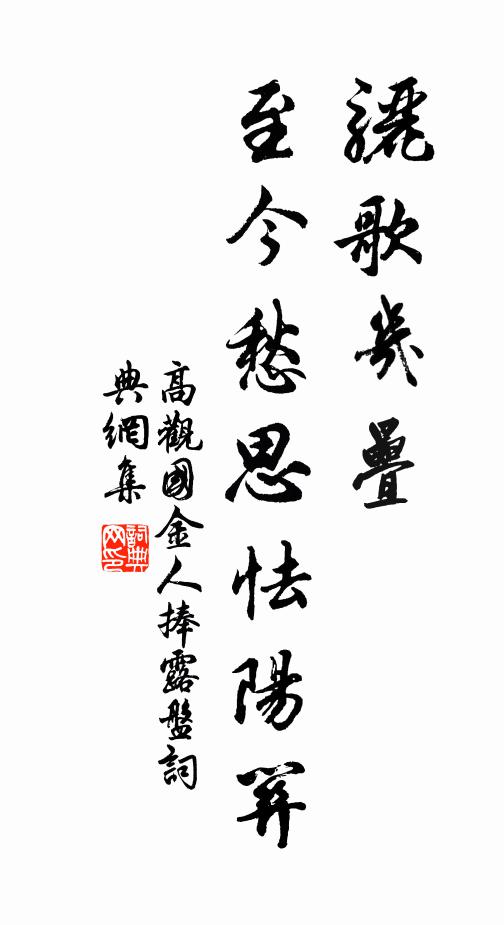 驪歌幾疊
至今愁思怯陽關
高觀國金人捧露盤詞
典網集
詞典網印